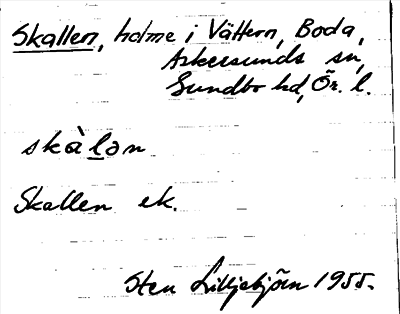 Skallen, holme i Vättern, Boda,
Askersunds sn,
Sundbo hd, Ör. l.
skàlən
Skallen ek.
Sten Lilljebjörn 1955.